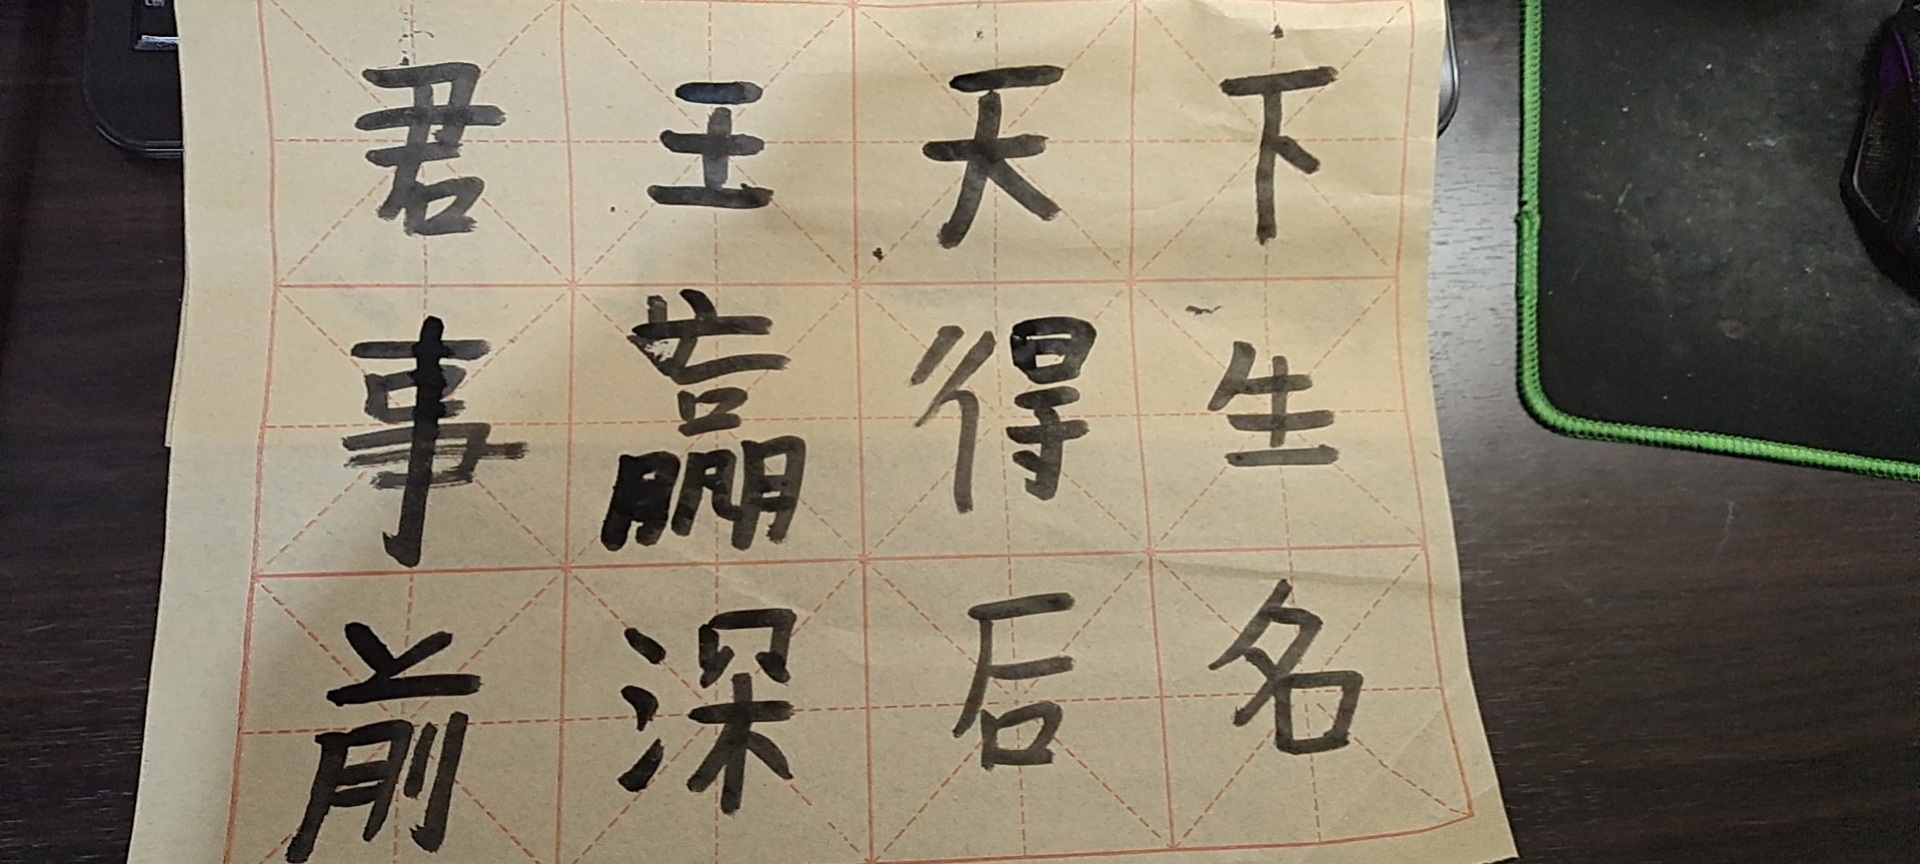 君王天下
事赢得生
前深后名